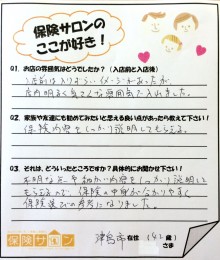 保険サロンの
ここが好き！
Q1. お店の雰囲気はどうでしたか？（入店前と入店後）
入店前は入りづらいイメージがあったが、
店内明るく気さくな雰囲気で入れました。
Q2. 家族や友達にも勧めてみたいと思える良い点があったら教えて下さい！
保険内容をしっかり説明してもらえる。
Q3. それは、どういったところですか？具体的にお聞かせ下さい！
不明な点や細かい内容をしっかり説明して
もらえるので、保険の中身が分かりやすく
保険選びの参考になりました。
保険サロン
津島市 在住（42歳）
さま